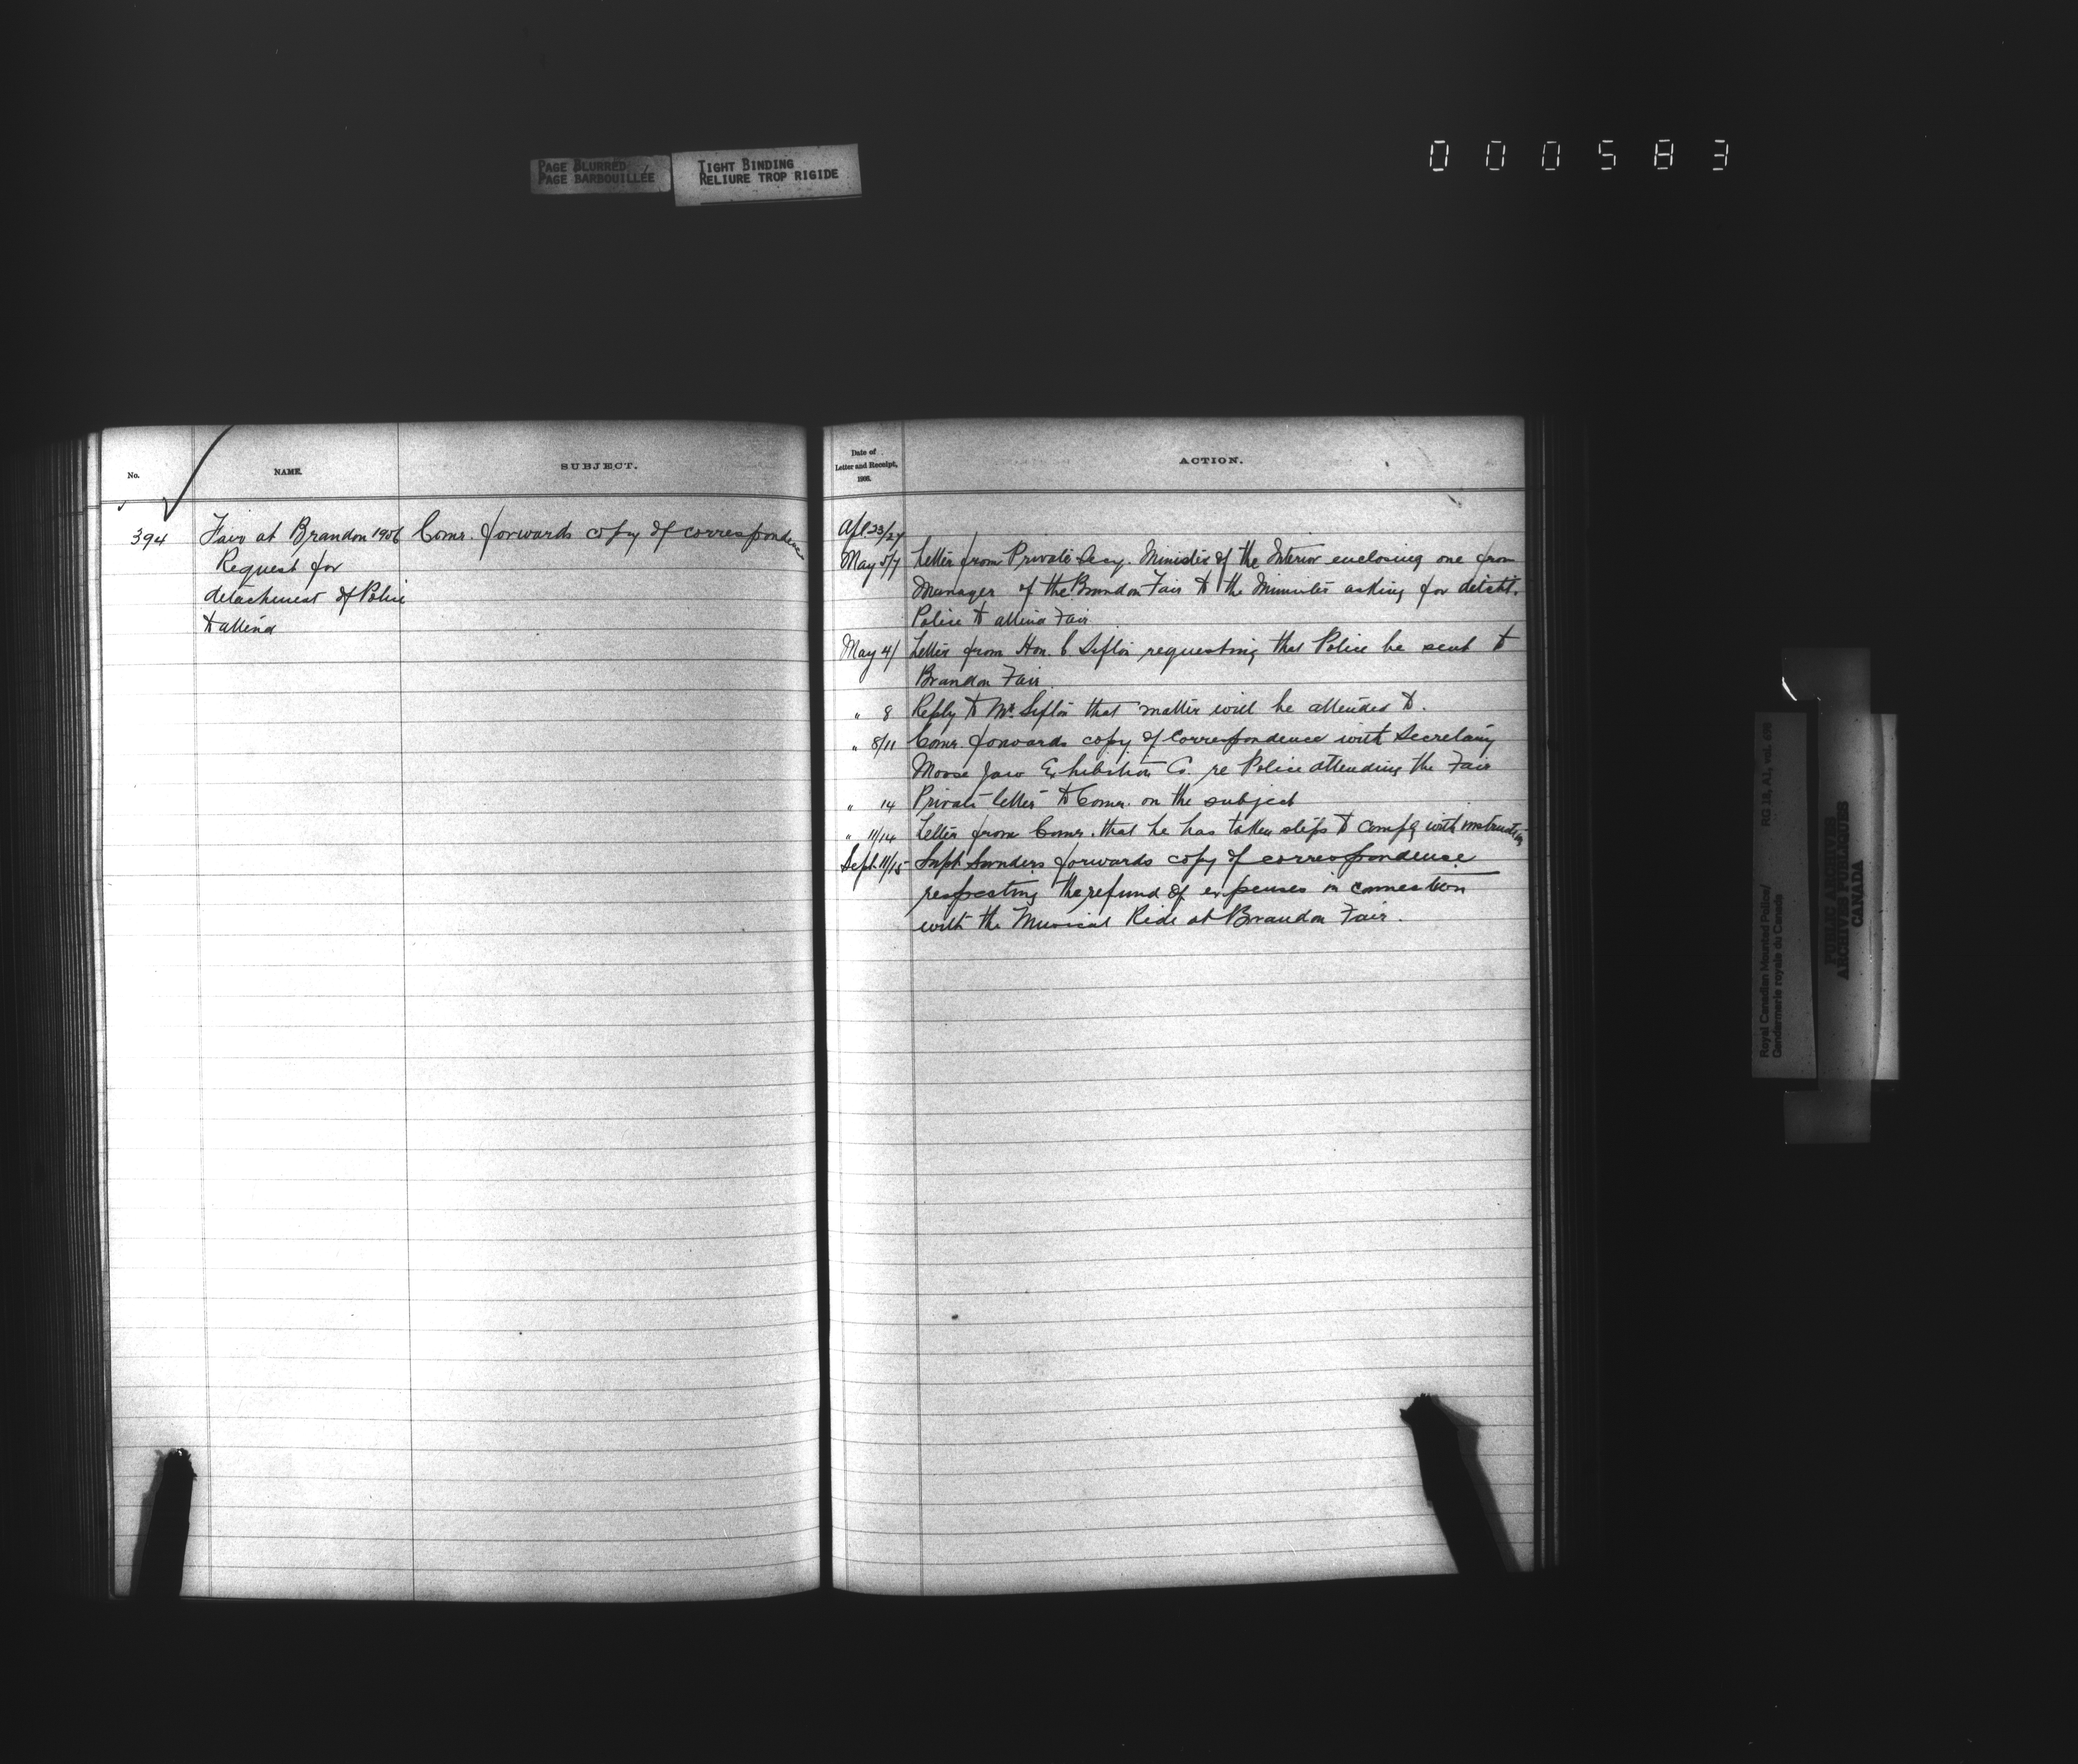 PAGE BLURRED
PAGE BARBOUILLÉE
TIGHT BINDING
RELIURE TROP RIGIDE
000583
No.
NAME.
SUBJECT.
394
Fair at Brandon 1906
Request for
detachment of Police
to attend
Comr. forwards copy of correspondence
Date of
Letter and Receipt,
1906.
ACTION.
Apl 23/27
May 5/7 Letter from Private Secy. Minister of the Interior enclosing one from
Manager of the Brandon Fair to the Minister asking for detcht.
Police to attend Fair
May 4/ Letter from Hon. C. Sifton requesting that Police be sent to
Brandon Fair.
" 8 Reply to Mr. Sifton that matter will be attended to.
" 8/11 Comr. forwards copy of correspondence with Secretary
Moose Jaw Exhibition Co. re Police attending the Fair
" 14 Private letter to Comr. on the subject
" 11/14 Letter from Comr. that he has taken steps to comply with instructions
Sept. 11/15 Supt. Sanders forwards copy of correspondence
respecting the refund of expenses in connection
with the Musical Ride at Brandon Fair.
Royal Canadian Mounted Police/
Gendarmerie royale du Canada
RG 18, A1, vol.
PUBLIC ARCHIVES
ARCHIVES PUBLIQUES
CANADA